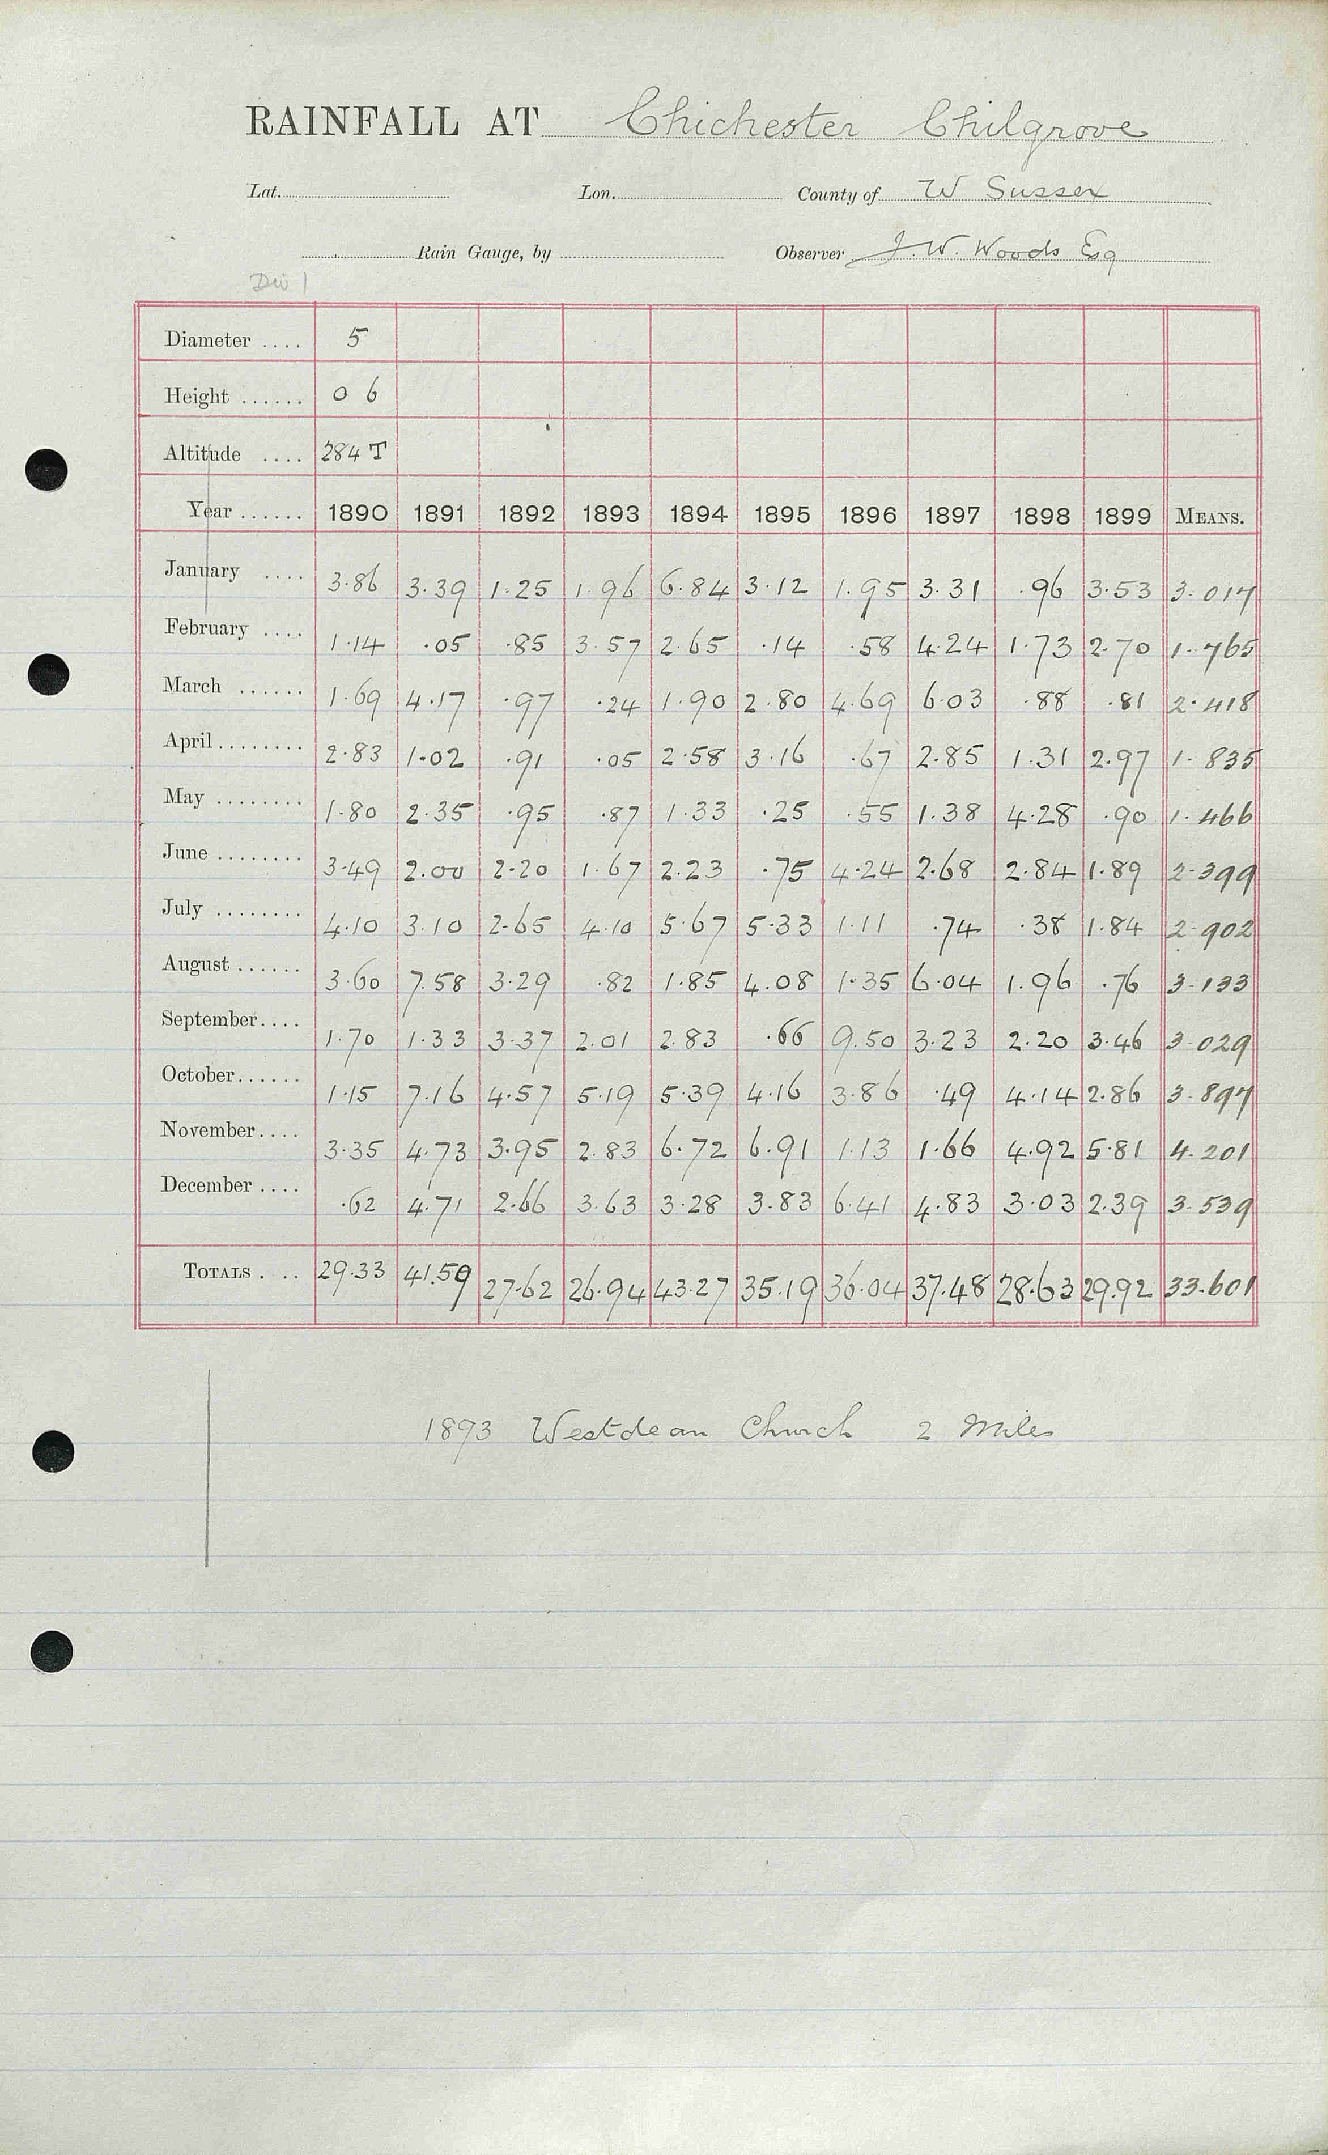 RAINFALL AT Chichester Chilgrove
Lat. Lon. County of W Sussex
Rain Gauge, by Observer J. W. Woods Esq
Div 1
Diameter .... 5
Height ...... 0 6
Altitude .... 284 T
Year ...... 1890 1891 1892 1893 1894 1895 1896 1897 1898 1899 MEANS.
January .... 3.86 3.39 1.25 1.96 6.84 3.12 1.95 3.31 .96 3.53 3.017
February .... 1.14 .05 .85 3.57 2.65 .14 .58 4.24 1.73 2.70 1.765
March ...... 1.69 4.17 .97 .24 1.90 2.80 4.69 6.03 .88 .81 2.418
April ........ 2.83 1.02 .91 .05 2.58 3.16 .67 2.85 1.31 2.97 1.835
May ........ 1.80 2.35 .95 .87 1.33 .25 .55 1.38 4.28 .90 1.466
June ........ 3.49 2.00 2.20 1.67 2.23 .75 4.24 2.68 2.84 1.89 2.399
July ........ 4.10 3.10 2.65 4.10 5.67 5.33 1.11 .74 .38 1.84 2.902
August ...... 3.60 7.58 3.29 .82 1.85 4.08 1.35 6.04 1.96 .76 3.133
September .... 1.70 1.33 3.37 2.01 2.83 .66 9.50 3.23 2.20 3.46 3.029
October ...... 1.15 7.16 4.57 5.19 5.39 4.16 3.86 .49 4.14 2.86 3.897
November .... 3.35 4.73 3.95 2.83 6.72 6.91 1.13 1.66 4.92 5.81 4.201
December .... .62 4.71 2.66 3.63 3.28 3.83 6.41 4.83 3.03 2.39 3.539
TOTALS .... 29.33 41.59 27.62 26.94 43.27 35.19 36.04 37.48 28.63 29.92 33.601
1893 Westdean Church 2 Miles